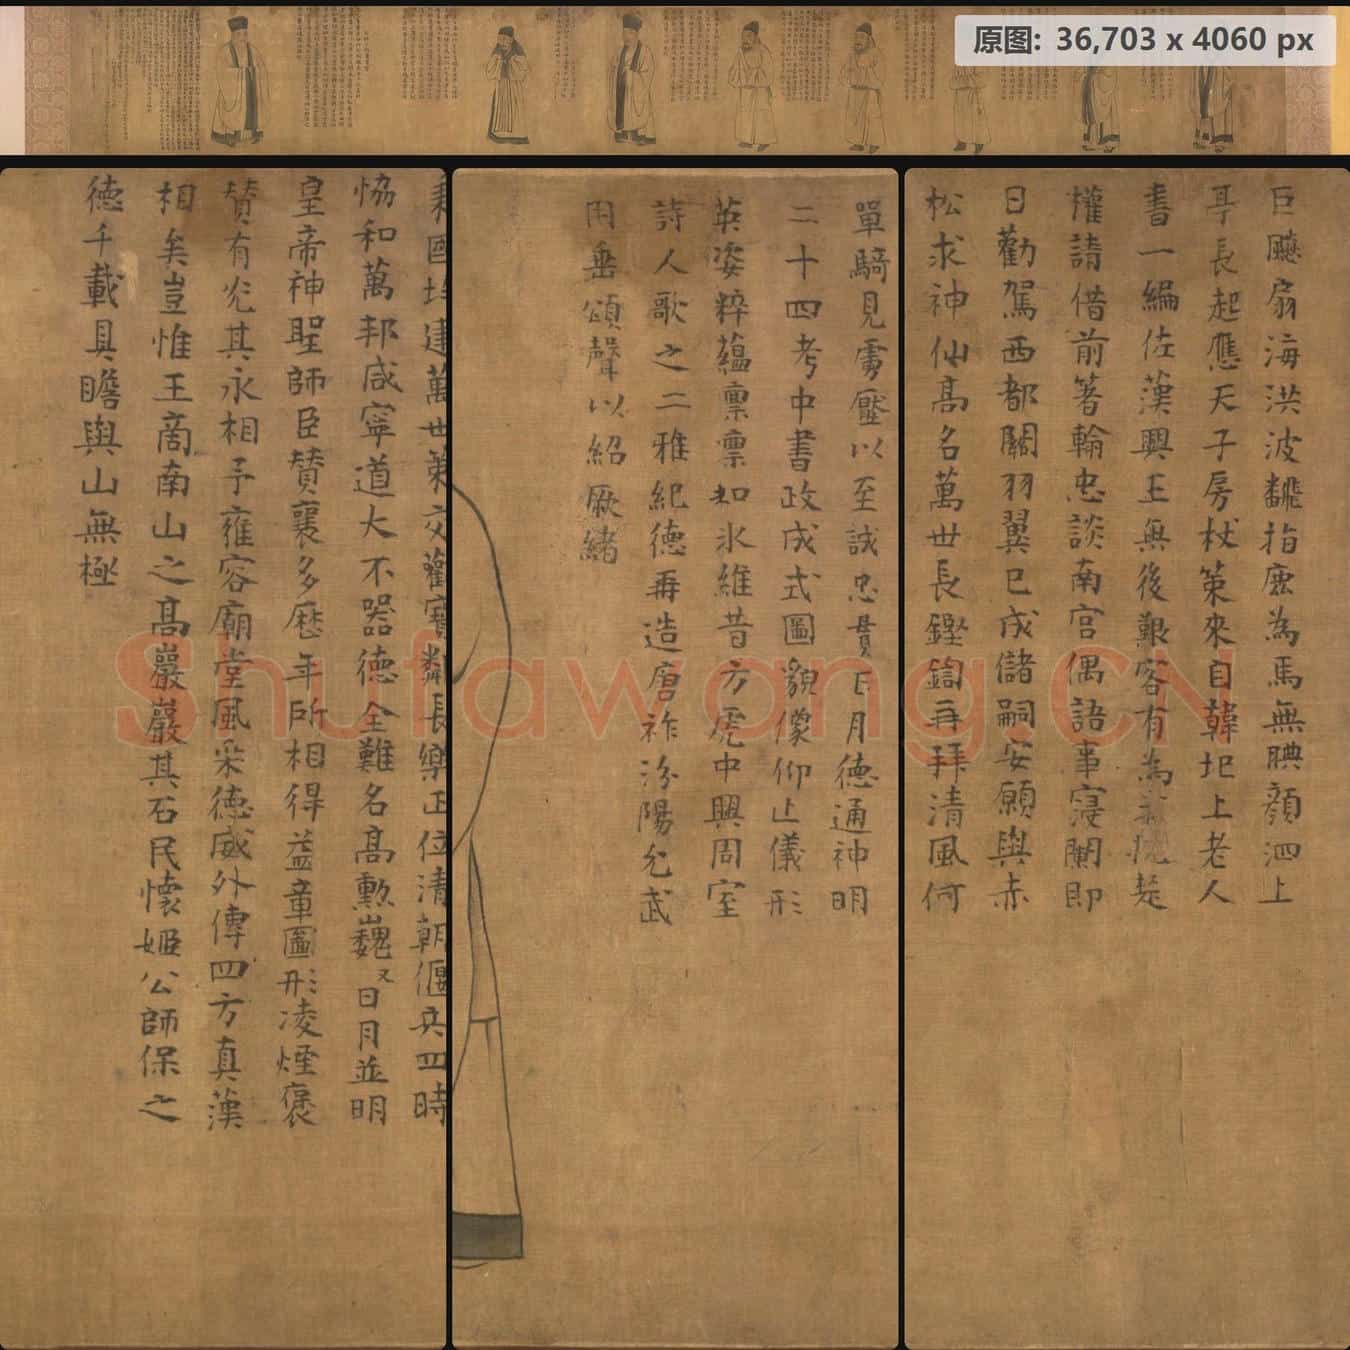 原图: 36,703 x 4060 px
巨颺扇海洪波飜指鹿為馬無腆顏泗上
亭長起應天子房杖策來自韓圯上老人
書一編佐漢興王無後艱容有為
權請借前箸輸忠談南宮偶語事寖闌即
日勸駕西都關羽翼已成儲嗣安願與赤
松求神仙高名萬世長鏗鍧再拜清風何
單騎見虜壓以至誠忠貫日月德通神明
二十四考中書政成式圖貌像仰止儀形
英姿粹蘊稟稟如氷維昔方虎中興周室
詩人歌之二雅紀德再造唐祚汾陽允武
用垂頌聲以紹厥緒
萬世策文
長樂正位清朝偃兵四時
恊和萬邦咸寧道大不器德全難名高勲巍又日月並明
皇帝神聖師臣贊襄多歷年所相得益章圖形凌煙褒
贊有光其永相予雍容廟堂風采德威外傳四方真漢
相矣豈惟王商南山之高巖巖其石民懷姬公師保之
德千載具瞻與山無極
Shufawang.CN